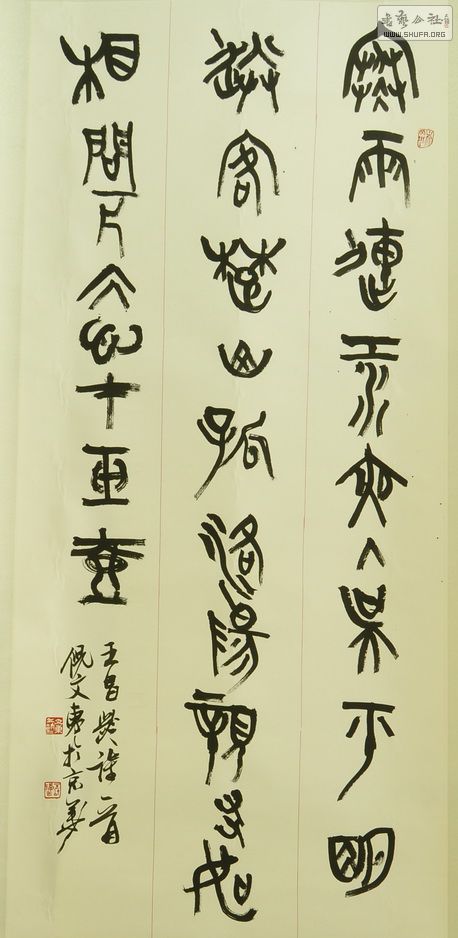 書藝公社
WWW.SHUFA.ORG
寒雨連江夜入吳平明
送客楚山孤洛陽親友如
相問一片冰心在玉壺
王昌齡詩一首
文於京華